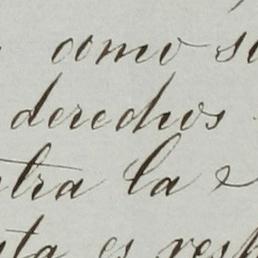 como s
derechos
tra la
ta es res